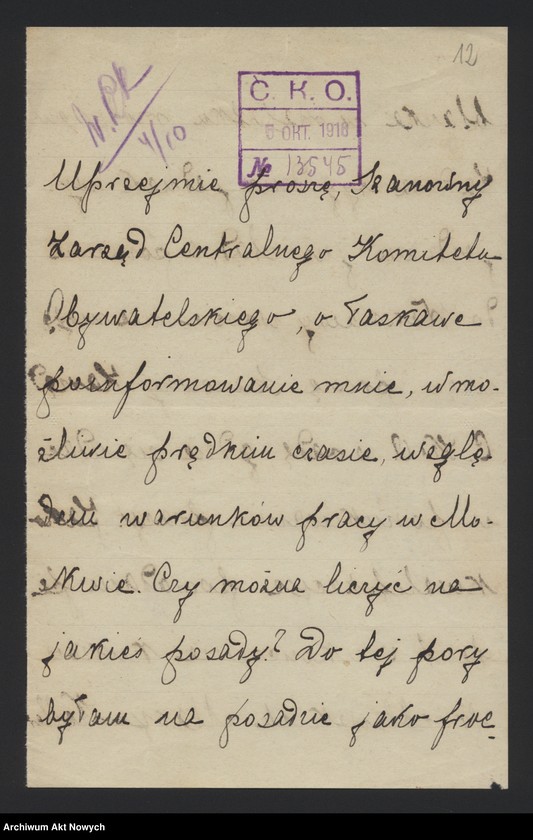 12
4/10
С. К. О.
5 ОКТ. 1916
№ 13545
Uprzejmie proszę, Szanowny
Zarząd Centralnego Komitetu
Obywatelskiego, o łaskawe
poinformowanie mnie, w mo-
żliwie prędkim czasie, wzglę-
dem warunków pracy w Mo-
skwie. Czy można liczyć na
jakieś posady? Do tej pory
byłam na posadzie jako froe-
Archiwum Akt Nowych